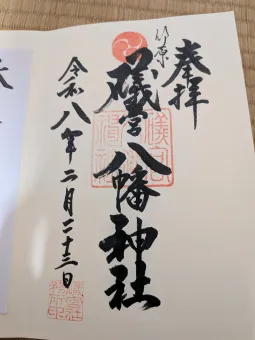 奉拝
竹原
礒宮八幡神社
令和八年二月二十三日